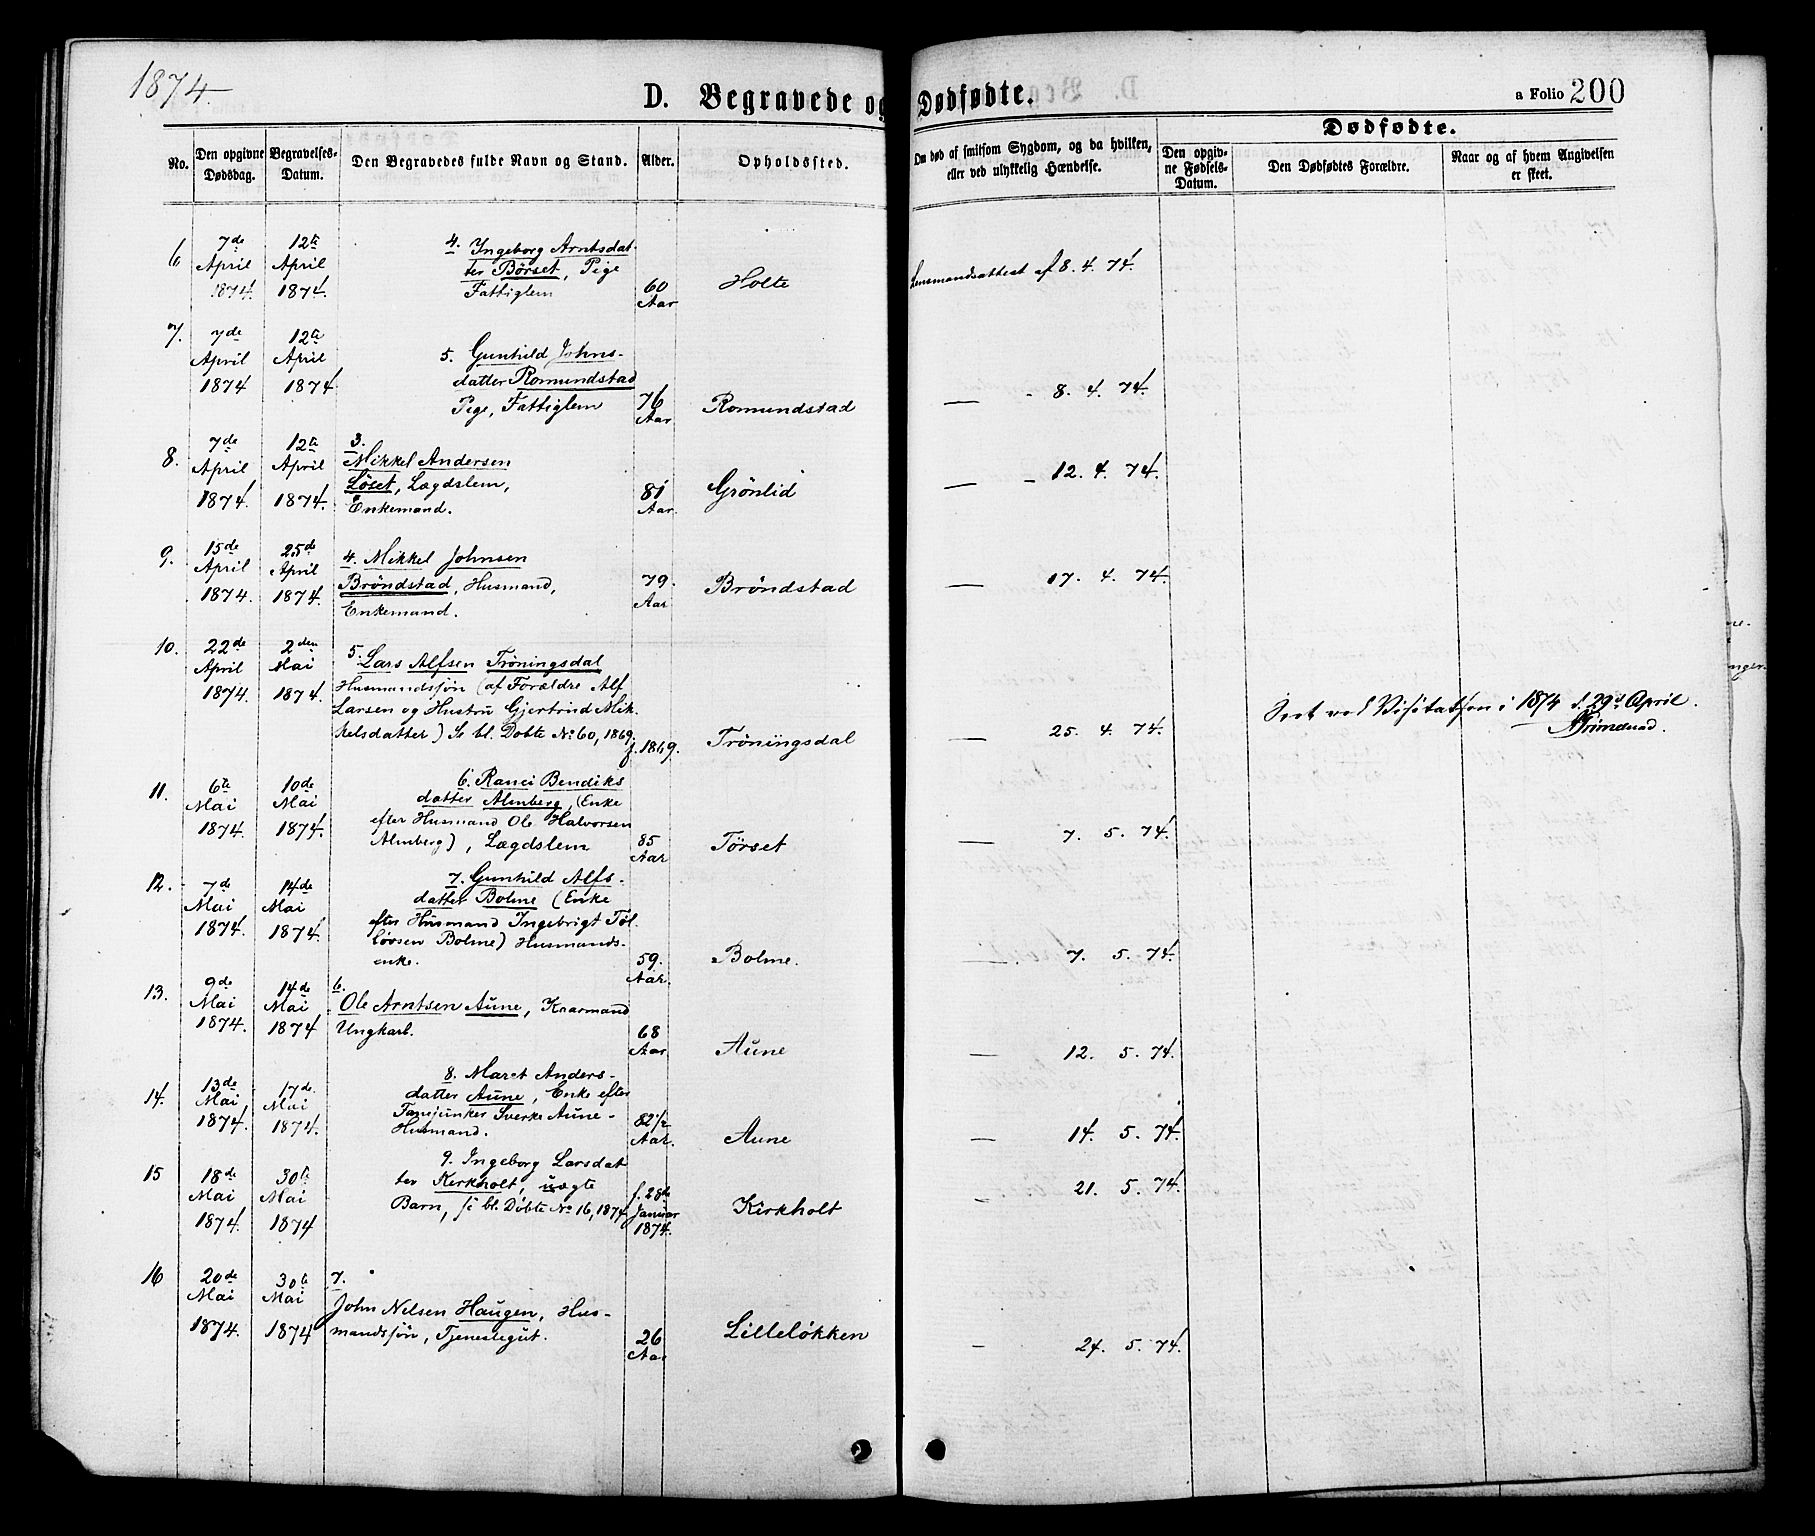 1874.
D. Begravede og Dødfødte.
a Folio 200
No.
Den opgivne Dødsdag.
Begravelses-Datum.
Den Begravedes fulde Navn og Stand.
Alder.
Opholdssted.
Om død af smitsom Sygdom, og da hvilken, eller ved ulykkelig Hændelse.
Dødfødte.
Den opgivne Fødsels-Datum.
Den Dødfødtes Forældre.
Naar og af hvem Angivelsen er skeet.
6 7de April 1874. 12te April 1874.
4. Ingeborg Arntsdat
ter Börset, Pige
Fattiglem
60 Aar
Holte
Lensmandsattest af 8. 4. 74.
7. 7de April 1874 12te April 1874.
5. Gunhild Johns-
datter Romundstad
Pige, Fattiglem
76 Aar
Romundstad
— - 8. 4. 74.
8. 7de April 1874. 12te April 1874.
3.
Mikkel Andersen
Löset, Lægdslem,
Enkemand.
81 Aar.
Grönlid
— - 12. 4. 74.
9. 15de April 1874. 25de April 1874.
4. Mikkel Johnsen
Bröndstad, Husmand,
Enkemand.
79. Aar
Bröndstad
— 17. 4. 74.
10. 22de April 1874. 2den Mai 1874.
5. Lars Alfsen Tröningsdal
Husmandssjön (af Forældre Alf
Larsen og Hustru Gjertrud Mik-
kelsdatter) Se bl. Döbte No 60, 1869.
f. 1869.
Tröningsdal
— 25. 4. 74.
Seet ved Visitatsen i 1874 d. 29d April.
11. 6te Mai 1874. 10de Mai 1874.
6. Ranei Bendiks
datter Almberg, (Enke
efter Husmand Ole Halvorsen
Almberg), Lægdslem
85 Aar
Törset
— 7. 5. 74.
12. 7de Mai 1874. 14de Mai 1874.
7. Gunhild Alfs-
datter Bolme (Enke
efter Husmand Ingebrigt Tol
lövsen Bolme) Husmands-
enke.
59. Aar.
Bolme.
— . 7. 5. 74.
13. 9de Mai 1874. 14de Mai 1874
6.
Ole Arntsen Aune, Kaarmand
Ungkarl.
68 Aar
Aune
— 12. 5. 74.
14. 13de Mai 1874. 17de Mai 1874.
8. Maret Anders-
datter Aune, Enke efter
Tanejunker Sverke Aune-
Husmand.
82 1/2 Aar.
Aune
— 14. 5. 74.
15 18de Mai 1874. 30te Mai 1874
9. Ingeborg Larsdat
ter Kirkholt, uægte
Barn, se bl. Döbte No 16, 1874
f. 28de Januar 1874.
Kirkholt
— 21. 5. 74.
16 20de Mai 1874. 30te Mai 1874
7.
John Nelsen Haugen, Hus-
mandssjön, Tjenestegut.
26 Aar
Lilleløkken
- 24. 5. 74.